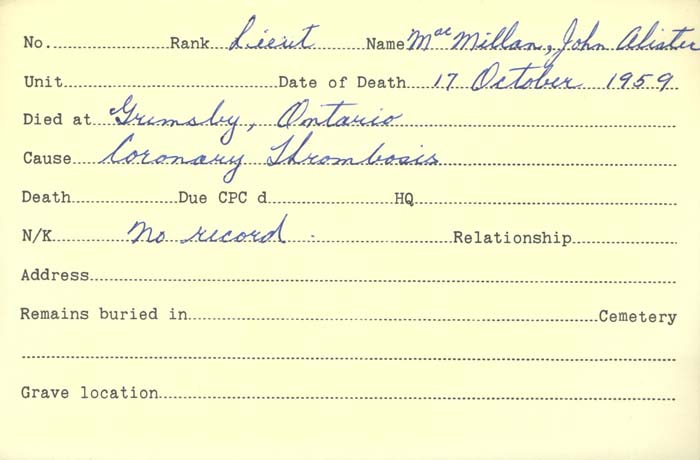 No. Rank Lieut Name MacMillan, John Alister
Unit Date of Death 17 October 1959
Died at Grimsby, Ontario
Cause Coronary Thrombosis
Death Due CPC d HQ
N/K No record. Relationship
Address
Remains buried in Cemetery
Grave location